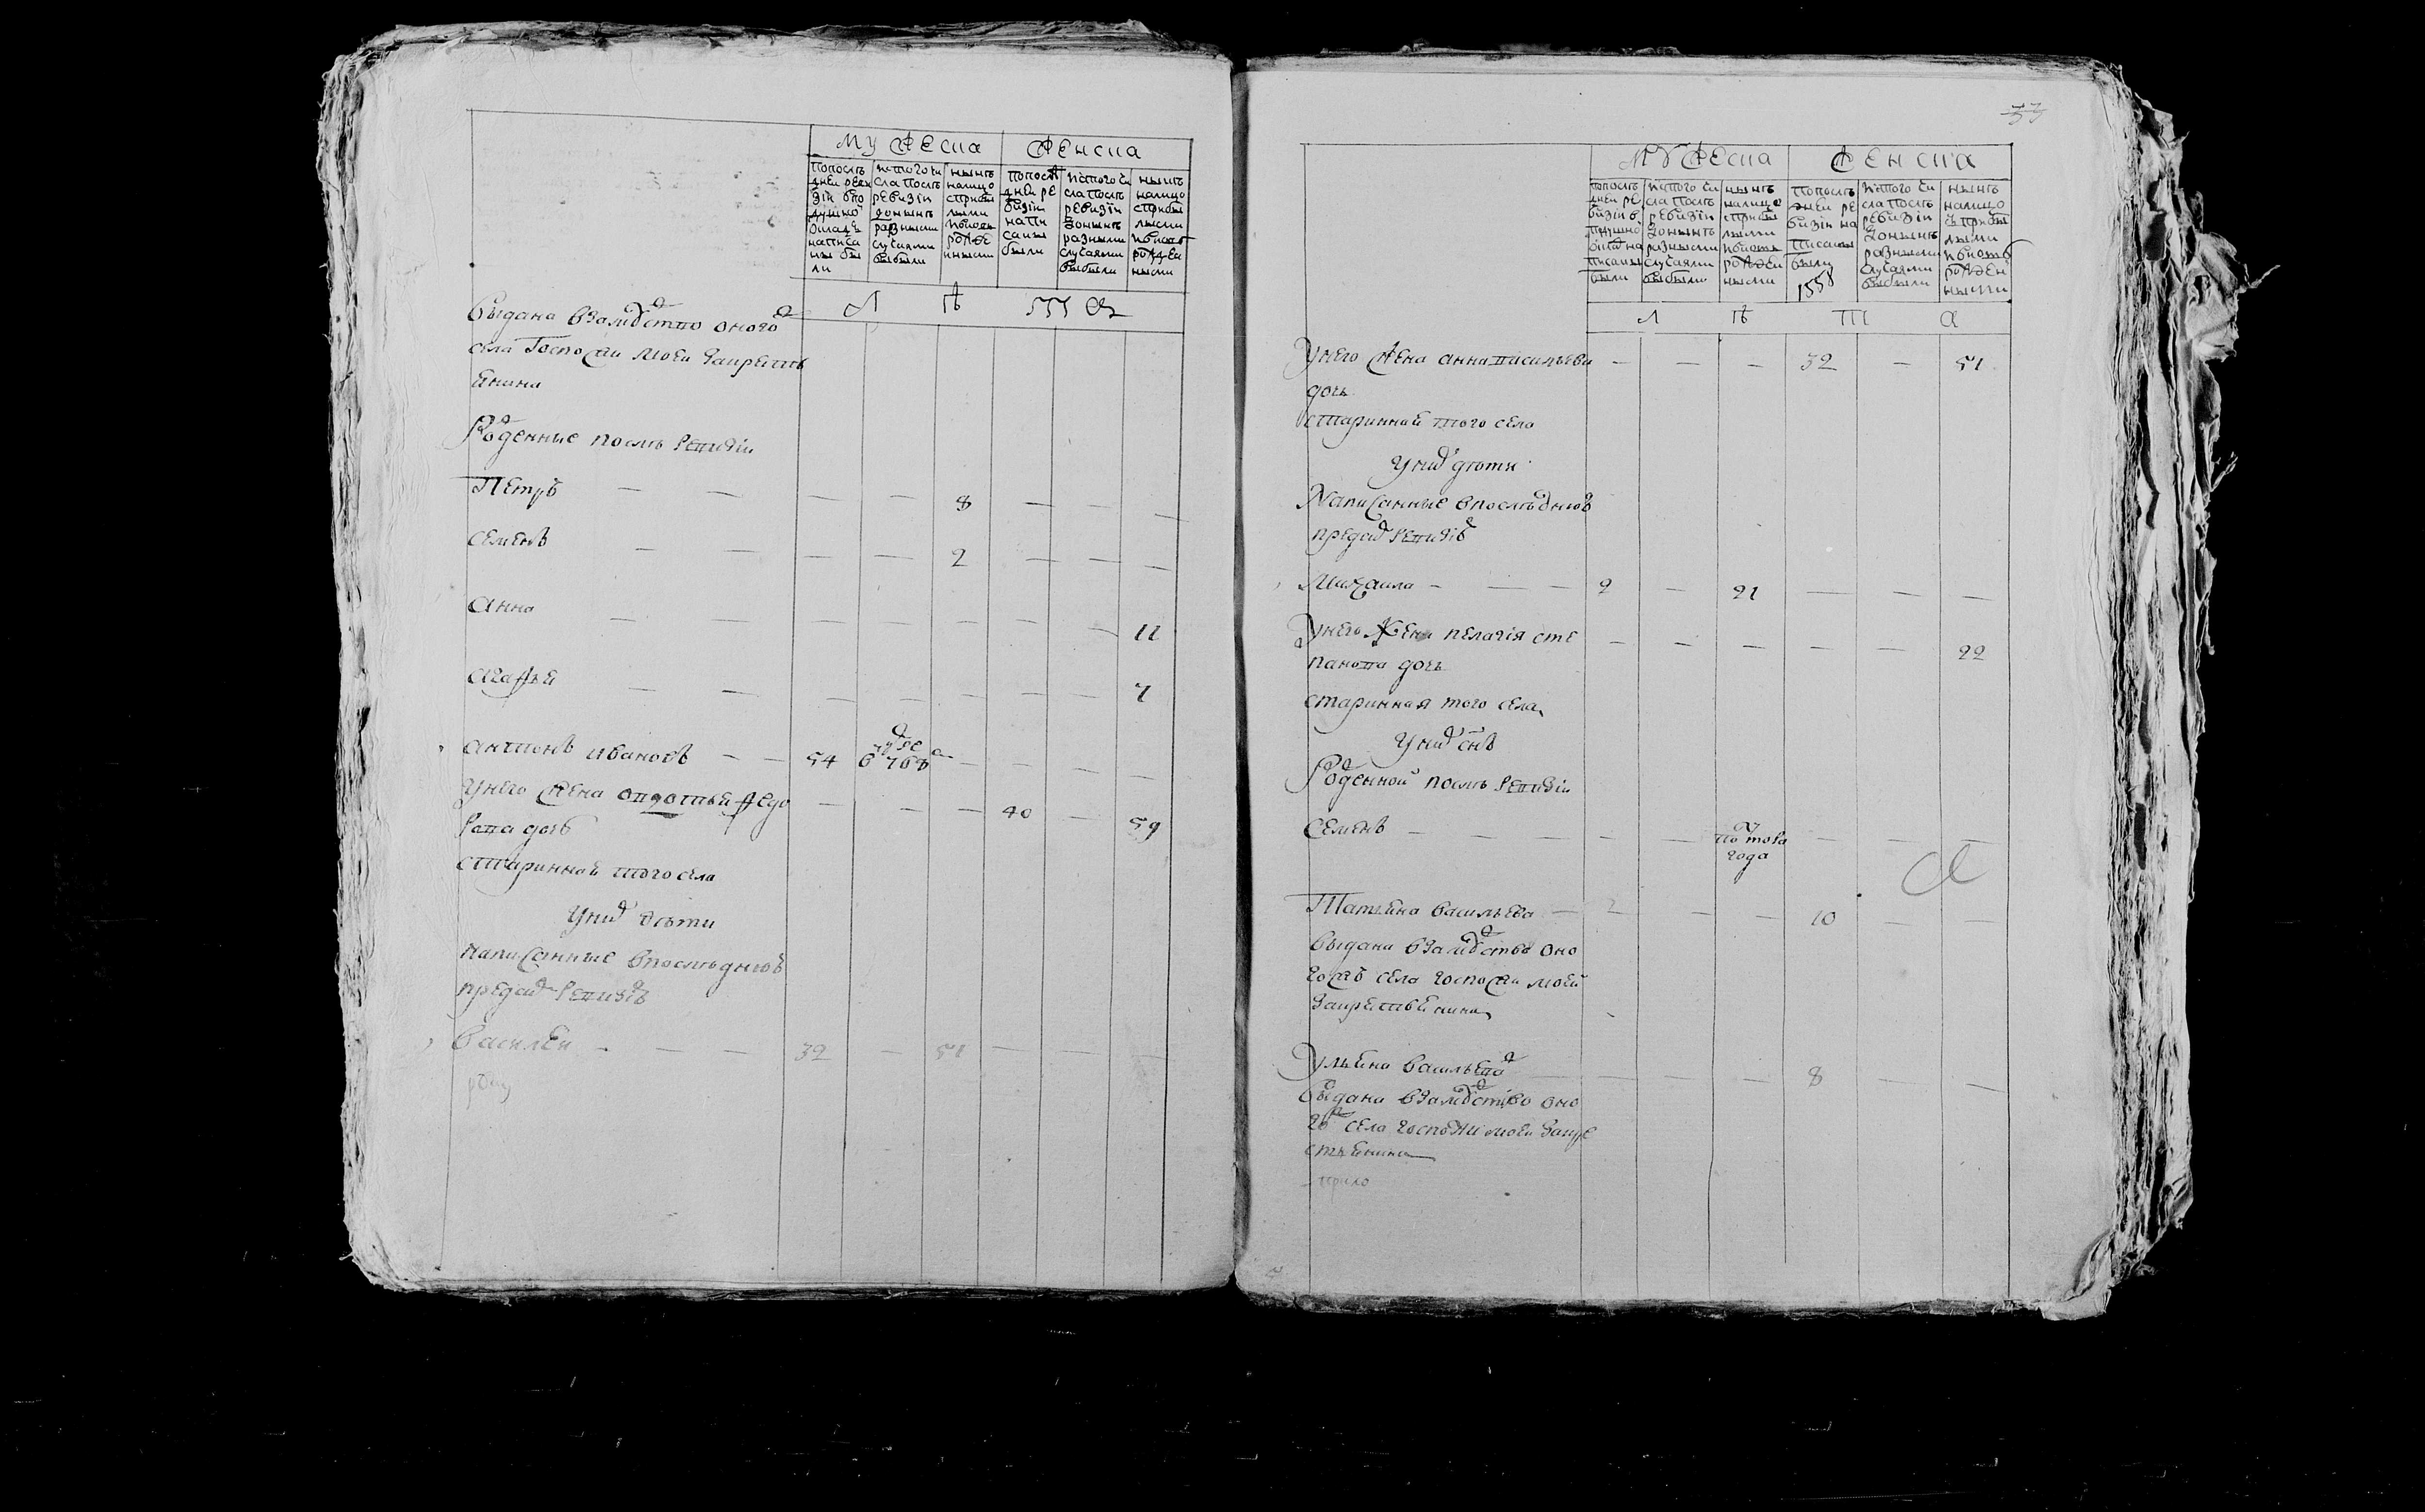 мужеска женска
по послѣдней ревизіи в подушной окладѣ написаны были
ис того числа послѣ ревизіи до нынѣ разными случаями выбыли
нынѣ на лицо с прибылыми и вновь рожденными
по послѣдней ревизіи написаны были
ис того числа послѣ ревизіи до нынѣ разными случаями выбыли
нынѣ на лицо с прибылыми и вновь рожденными
Л ѣ т а
Выдана взамужство оного
села Госпожи моей за крестья
янина
Рожденные послѣ ревизіи
Петръ — — — — 8 — — —
Семенъ — — — — 2 — — —
Анна — — — — — — — 11
Агафья — — — — — — — 7
Антонъ Ивановъ — — 54 в 768 — — — —
У него жена Авдотья Федо — — — 40 — 59
рова дочь
старинная того села
У них дѣти
написанные в послѣднюю
пред сим ревизію
Василей — — — 32 — 51 — — —
33
мужеска женска
по послѣдней ревизіи в подушной оклад написаны были
ис того числа послѣ ревизіи до нынѣ разными случаями выбыли
нынѣ на лицо с прибылыми и вновь рожденными
по послѣдней ревизіи написаны были
1558
ис того числа послѣ ревизіи до нынѣ разными случаями выбыли
нынѣ на лицо с прибылыми и вновь рожденными
Л ѣ т а
У него жена Анна Васильева — — — 32 — 51
дочь
старинная того села
У них дѣти
Написанные в послѣднюю
пред сим ревизію
Михаила — — — 2 — 21 — — —
У него жена Пелагія Сте — — — — — 22
панова дочь
старинная того села
У них сн҃ъ
Рожденной послѣ ревизіи
Семенъ — — — — — полтора — — —
года
Татьяна Васильева — — — 10 — —
выдана взамужство оно
гожъ села госпожи моей
за крестьянина
Ульяна Васильева — — — 8 — —
выдана взамужство оно
го села госпожи моей за кре
стьянина